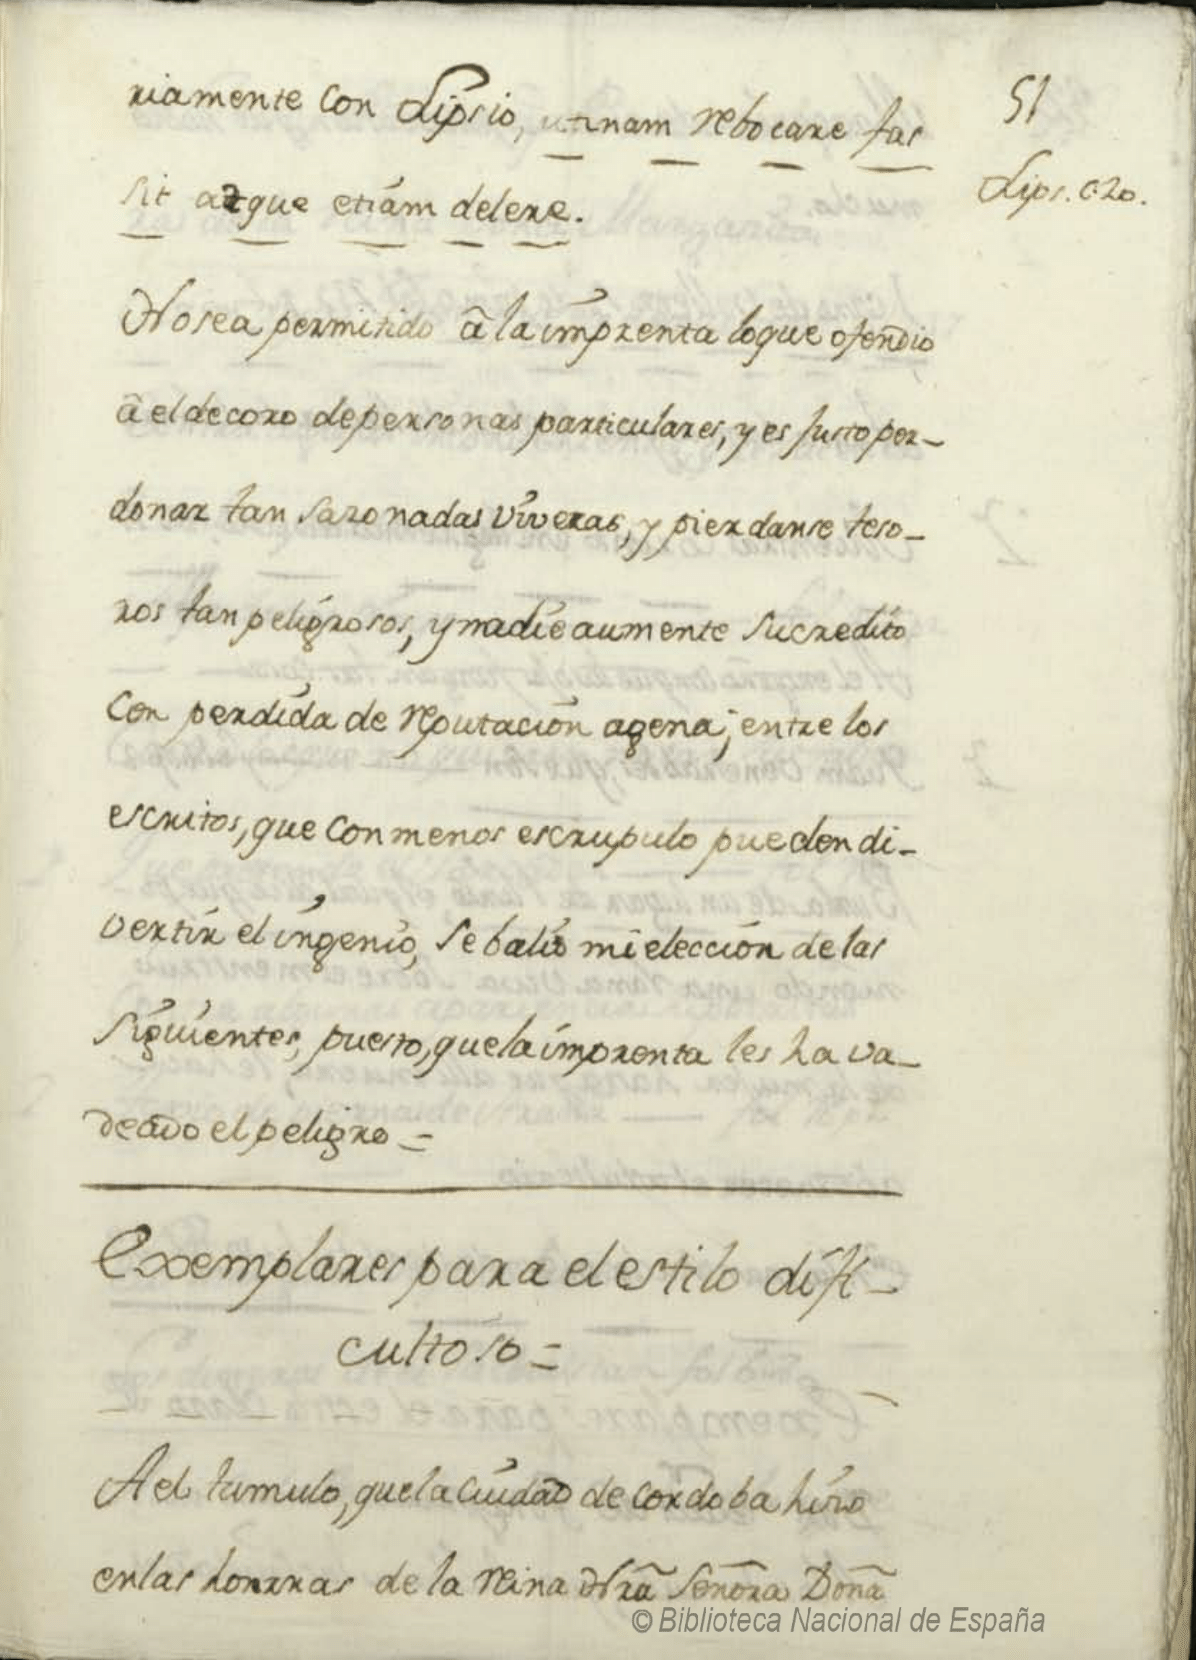 51
riamente con Lipsio, utinam rebocare fas
Lips. c. 20.
sit atque etiám delere.
No sea permitido â la imprenta loque ofendio
â el decoro de personas particulares, y es Justo per-
donar tan sazonadas viveras, y pierdanse teso-
ros tan peligrosos, y nadie aumente su credito
con perdida de reputación agena; entre los
escritos, que con menos escrupulo pueden di-
vertir el ingenio, se balió mi elección de las
siguientes, puesto, que la imprenta les ha va-
deado el peligro =
Exemplares para el estilo difi-
cultoso =
A el tumulo, que la Ciudad de Cordoba hizo
en las honrras de la Reina Nrã Señora Doña
© Biblioteca Nacional de España